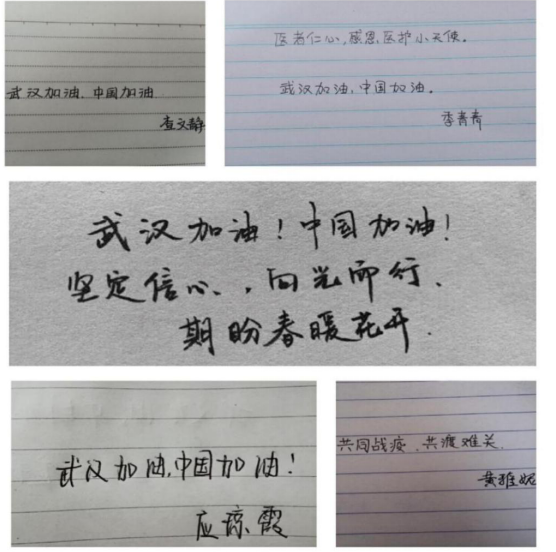 武汉加油,中国加油
查文静
医者仁心,感恩医护小天使。
武汉加油,中国加油。
李青青
武汉加油!中国加油!
坚定信心,向光而行、
期盼春暖花开.
武汉加油,中国加油!
应琼霞
共同战疫,共渡难关.
黄雅妮